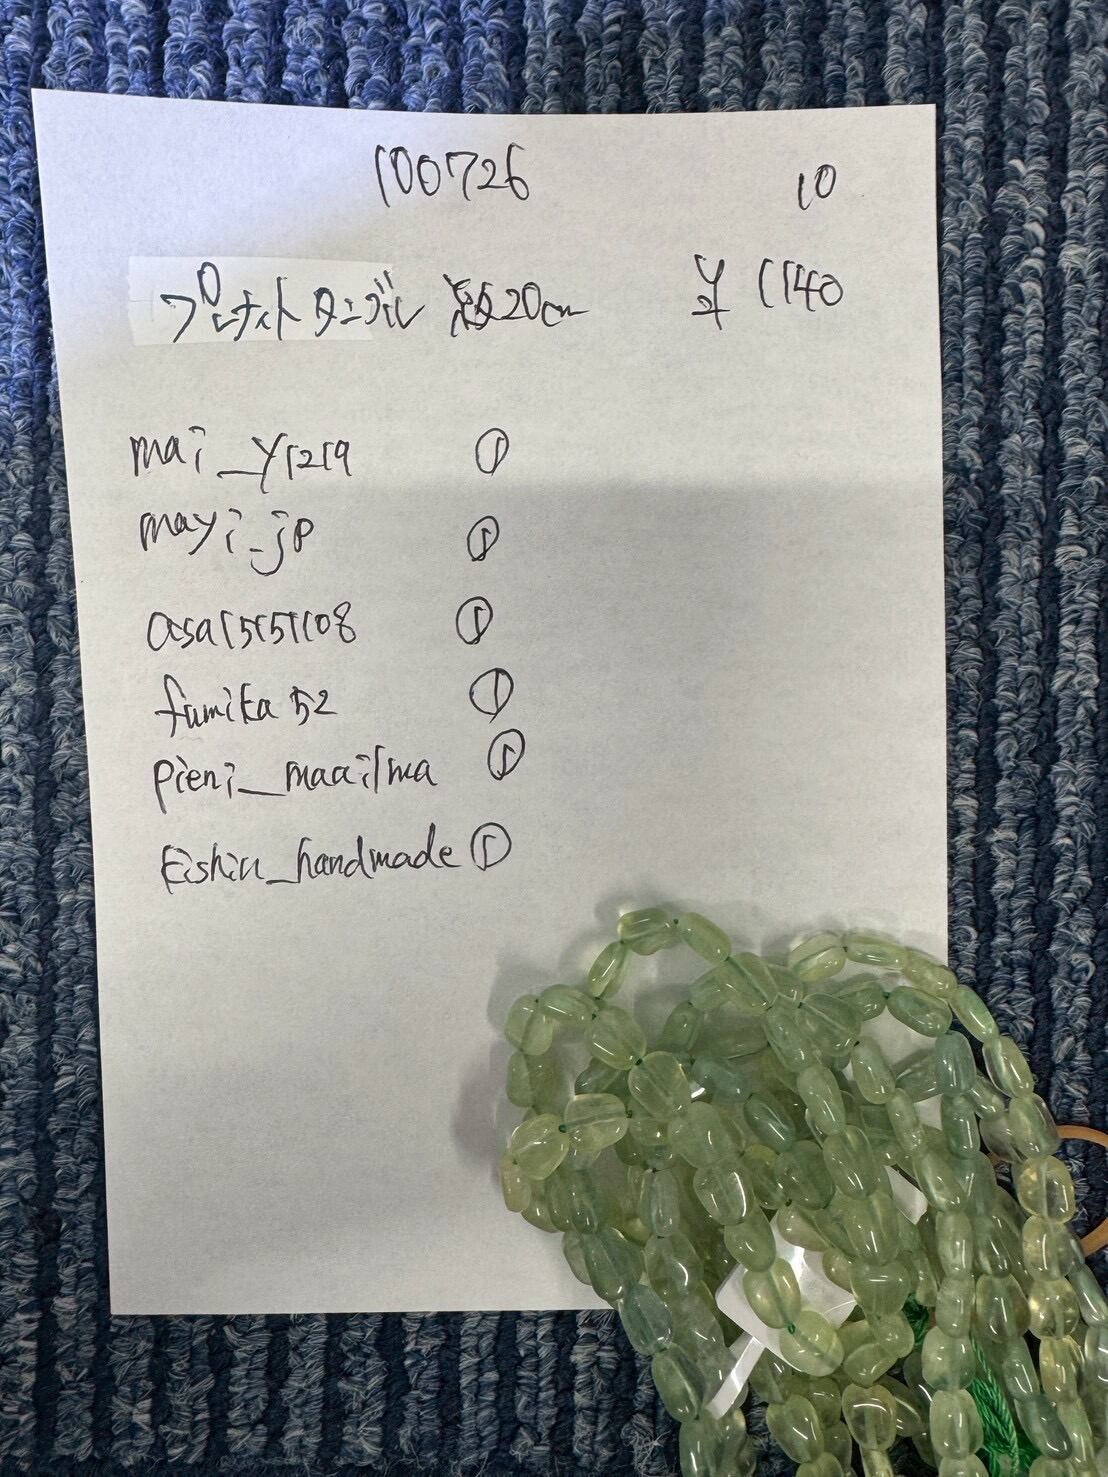 100726 10
プレナイトタンブル 約20cm ¥1140
mai_y1219 ①
mayi_jp ①
asa15151108 ①
fumika52 ①
pieni_maailma ①
Eishin_handmade ①